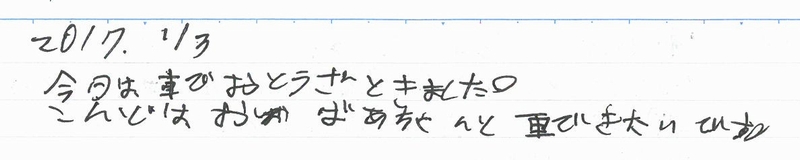 2017. 1/3
今日は車でおとうさんときました。
こんどはおばあちゃんと車できたいですね